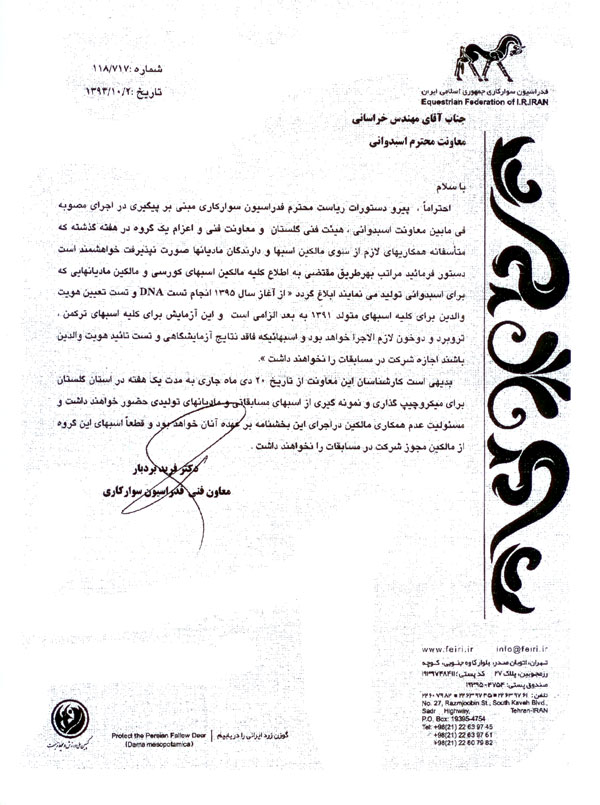 شماره :۱۱۸/۷۱۷
تاریخ :۱۳۹۳/۱۰/۲
فدراسیون سوارکاری جمهوری اسلامی ایران
Equestrian Federation of I.R.IRAN
جناب آقای مهندس خراسانی
معاونت محترم اسبدوانی
با سلام
احتراماً ، پیرو دستورات ریاست محترم فدراسیون سوارکاری مبنی بر پیگیری در اجرای مصوبه
فی مابین معاونت اسبدوانی ، هیئت فنی گلستان و معاونت فنی و اعزام یک گروه در هفته گذشته که
متأسفانه همکاریهای لازم از سوی مالکین اسبها و دارندگان مادیانها صورت نپذیرفت خواهشمند است
دستور فرمائید مراتب بهرطریق مقتضی به اطلاع کلیه مالکین اسبهای کورسی و مالکین مادیانهایی که
برای اسبدوانی تولید می نمایند ابلاغ گردد « از آغاز سال ۱۳۹۵ انجام تست DNA و تست تعیین هویت
والدین برای کلیه اسبهای متولد ۱۳۹۱ به بعد الزامی است و این آزمایش برای کلیه اسبهای ترکمن ،
تروبرد و دوخون لازم الاجرا خواهد بود و اسبهائیکه فاقد نتایج آزمایشگاهی و تست تائید هویت والدین
باشند اجازه شرکت در مسابقات را نخواهند داشت ».
بدیهی است کارشناسان این معاونت از تاریخ ۲۰ دی ماه جاری به مدت یک هفته در استان گلستان
برای میکروچیپ گذاری و نمونه گیری از اسبهای مسابقاتی و مادیانهای تولیدی حضور خواهند داشت و
مسئولیت عدم همکاری مالکین دراجرای این بخشنامه بر عهده آنان خواهد بود و قطعاً اسبهای این گروه
از مالکین مجوز شرکت در مسابقات را نخواهند داشت .
دکتر فرید بردبار
معاون فنی فدراسیون سوارکاری
www.feiri.ir info@feiri.ir
تهران، اتوبان صدر، بلوار کاوه جنوبی، کوچه
رزمجوبین، پلاک ۲۷ کد پستی: ۱۹۳۹۷۴۸۴۱۱
صندوق پستی: ۴۷۵۴-۱۹۳۹۵
تلفن: ۲۲۶۳۹۷۶۱ ۲۲۶۳۹۷۴۵ ۲۲۶۰۷۹۸۲
No. 27, Razmjoobin St., South Kaveh Blvd.,
Sadr Highway, Tehran-IRAN
P.O. Box: 19395-4754
Tel: +98(21) 22 63 97 45
+98(21) 22 63 97 61
+98(21) 22 60 79 82
Protect the Persian Fallow Deer
(Dama mesopotamica)
گوزن زرد ایرانی را دریابیم